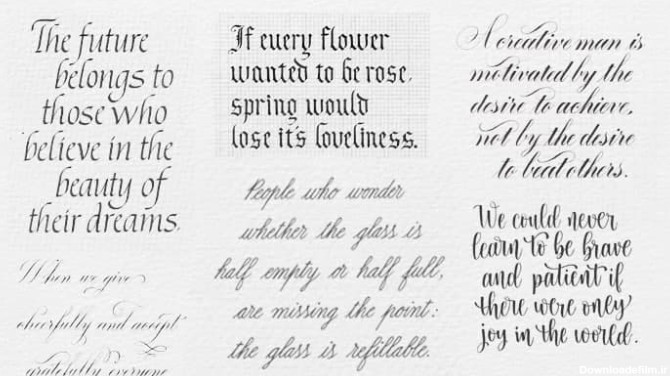 The future
belongs to
those who
believe in the
beauty of
their dreams.
When we give
cheerfully and accept
gratefully everyone
If every flower
wanted to be rose,
spring would
lose it's loveliness.
People who wonder
whether the glass is
half empty or half full,
are missing the point:
the glass is refillable.
A creative man is
motivated by the
desire to achieve,
not by the desire
to beat others.
We could never
learn to be brave
and patient if
there were only
joy in the world.